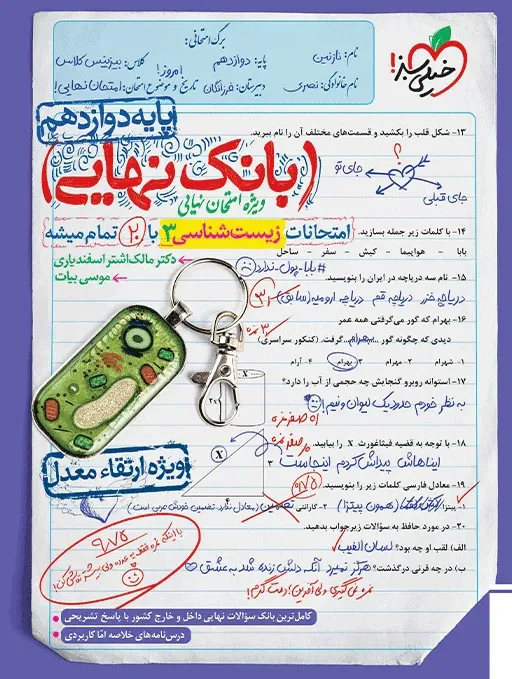 برگ امتحانی:
نام: نازنین
پایه: دوازدهم
کلاس: بیزینس کلاس
نام خانوادگی: نصری
دبیرستان: فرزانگان
تاریخ و موضوع امتحان: امتحان نهایی! امروز!
خیلی سبز!
پایه دوازدهم
۱۳- شکل قلب را بکشید و قسمت‌های مختلف آن را نام ببرید.
؟
جای تو
جای قبلی
(بانک نهایی)
ویژه امتحان نهایی
امتحانات زیست‌شناسی ۳ با ۲۰ تمام میشه
۱۴- با کلمات زیر جمله بسازید.
بابا - هواپیما - کیش - سفر - ساحل
#بابا_پول_ندارد
دکتر مالک‌اشتر اسفندیاری
موسی بیات
۱۵- نام سه دریاچه در ایران را بنویسید.
دریاچه خزر دریاچه قم دریاچه ارومیه (سابق)
۱۶- بهرام که گور می‌گرفتی همه عمر
دیدی که چگونه گور ...بهرام... گرفت. (کنکور سراسری)
۱- شهرام ۲- مهرام ۳- بهرام ۴- آرام
۱۷- استوانه روبرو گنجایش چه حجمی از آب را دارد؟
به نظر خودم حدود یک لیوان و نیم!
X
۱۸- با توجه به قضیه فیثاغورث X را بیابید.
ایناهاش پیداش کردم اینجاست
X
۳
۴
ویژه ارتقاء معدل
۱۹- معادل فارسی کلمات زیر را بنویسید.
۱- پیتزا (همون پیتزا) ۲- گارانتی
۲۰- در مورد حافظ به سؤالات زیر جواب بدهید.
الف) لقب او چه بود؟ لسان الغیب
ب) در چه قرنی درگذشت؟ هرگز نمیرد آنکه دلش زنده شد به عشق
نمره نمی‌گیری ولی آفرین! دمت گرم!
۹/۷۵
کامل‌ترین بانک سؤالات نهایی داخل و خارج کشور با پاسخ تشریحی
درس‌نامه‌های خلاصه امّا کاربردی